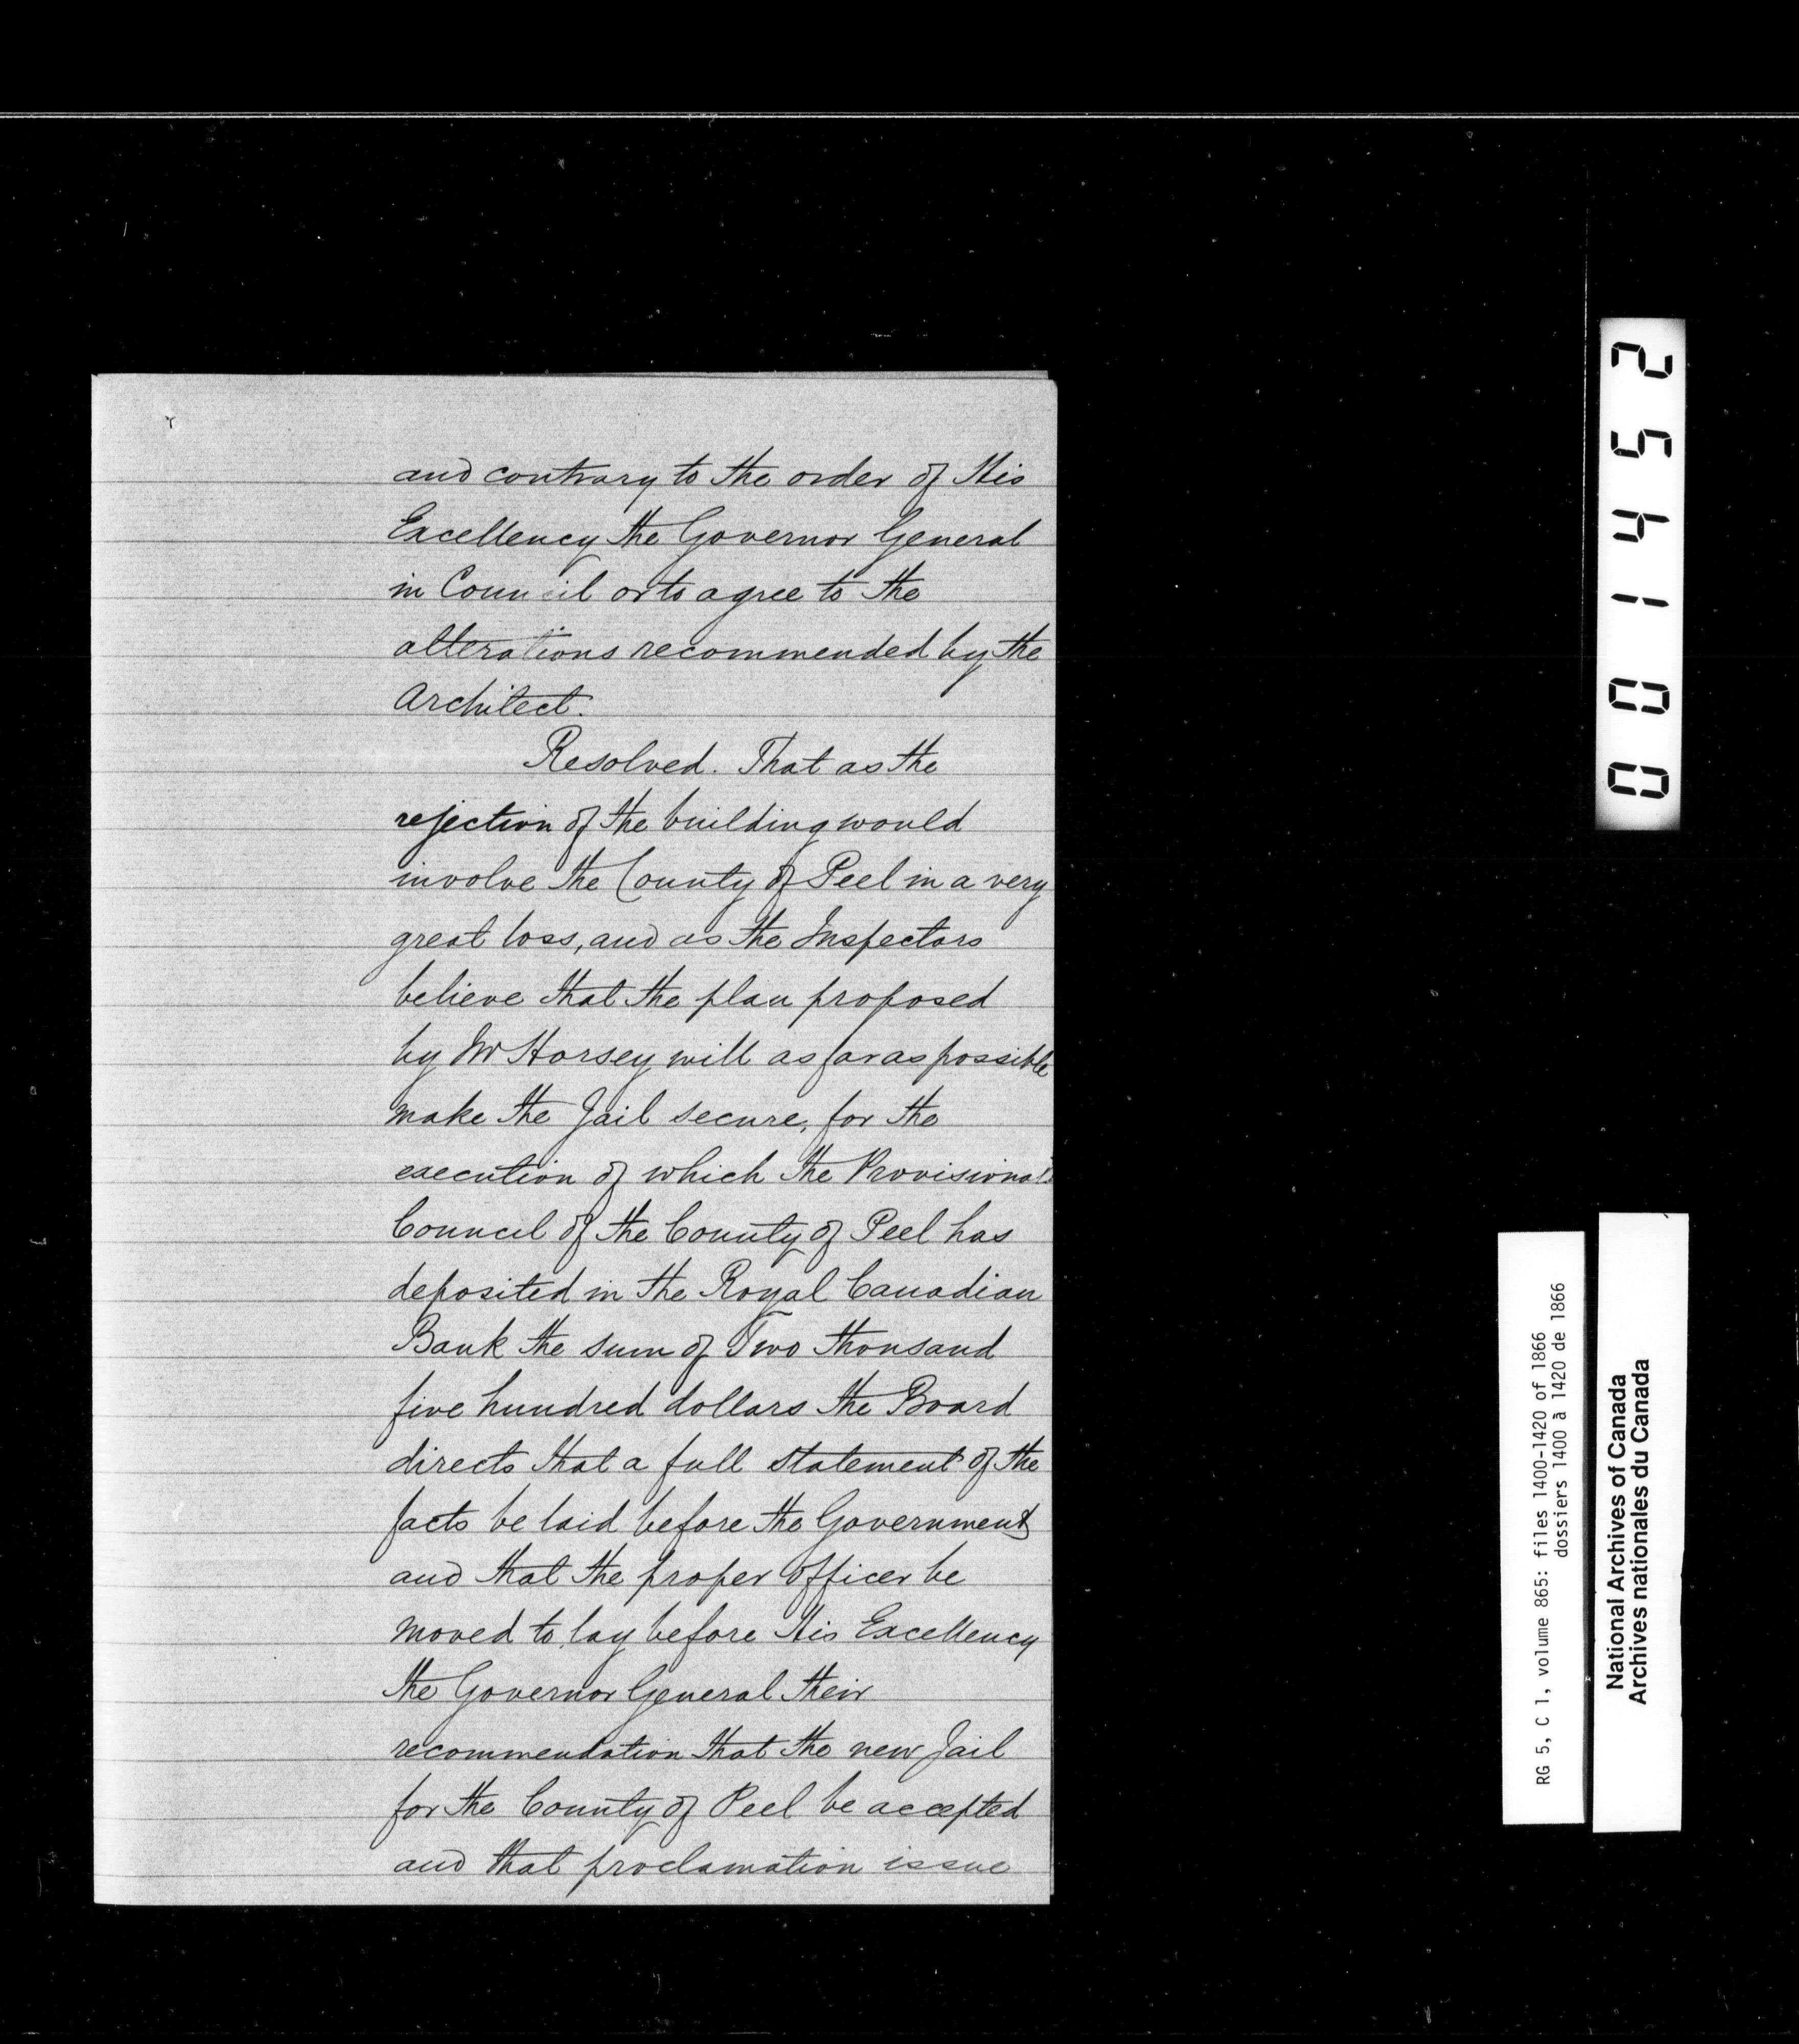 and contrary to the order of His
Excellency the Governor General
in Council or to agree to the
alterations recommended by the
Architect.
Resolved. That as the
rejection of the building would
involve the County of Peel in a very
great loss, and as the Inspectors
believe that the plan proposed
by Mr Horsey will as far as possible
make the Jail secure, for the
execution of which the Provisional
Council of the County of Peel has
deposited in the Royal Canadian
Bank the sum of Two thousand
five hundred dollars the Board
directs that a full statement of the
facts be laid before the Government
and that the proper officer be
moved to lay before His Excellency
the Governor General their
recommendation that the new Jail
for the County of Peel be accepted
and that proclamation issue
001452
RG 5, C 1, volume 865: files 1400-1420 of 1866
dossiers 1400 à 1420 de 1866
National Archives of Canada
Archives nationales du Canada